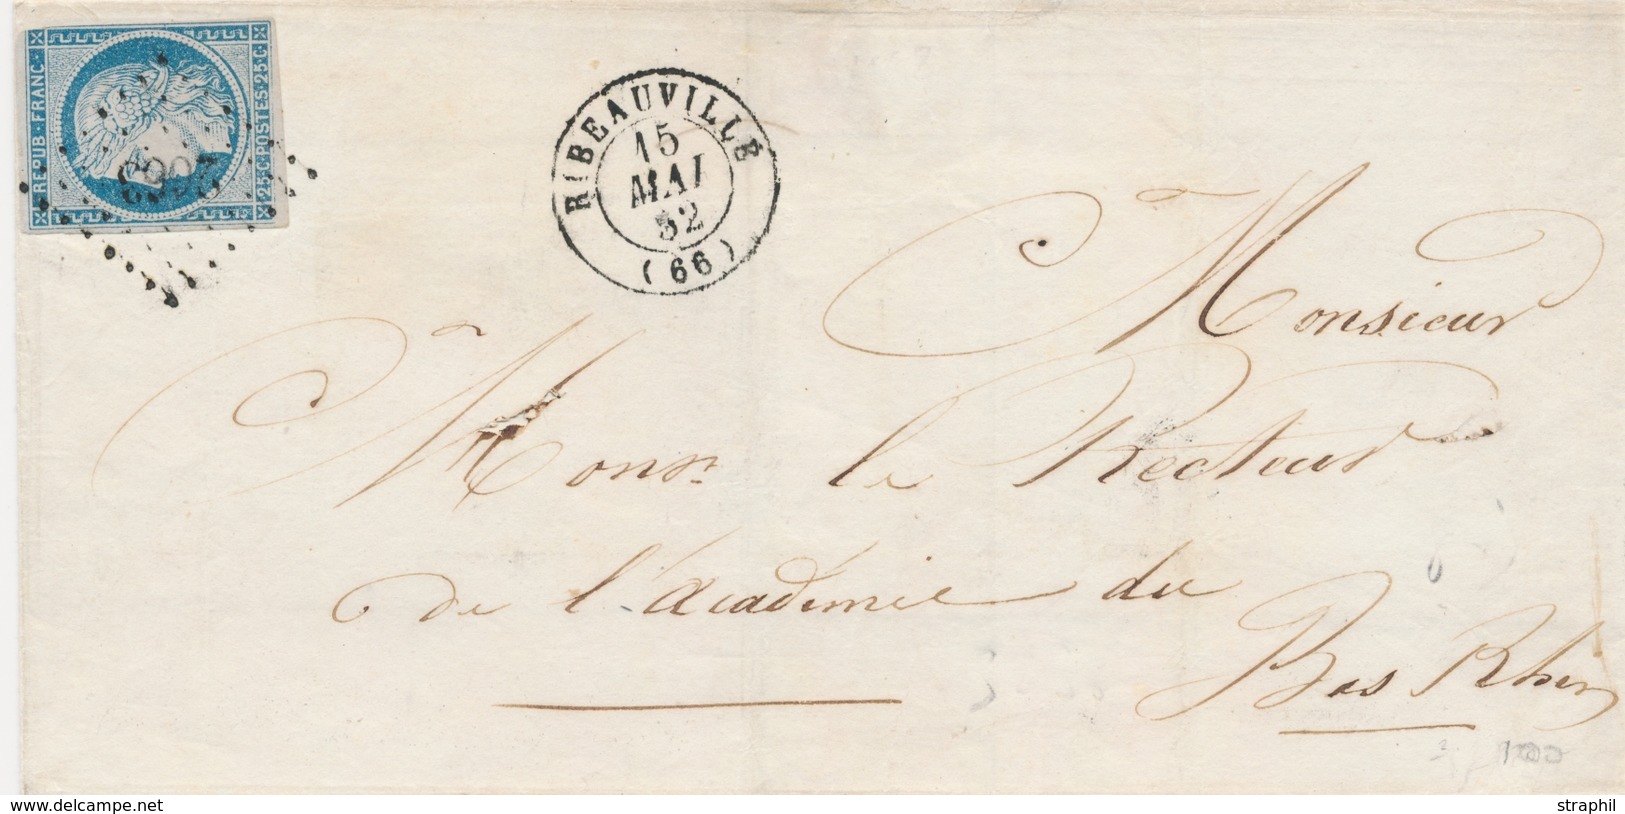 REPUB · FRANC ·
25 · C · POSTES · 25 · C ·
RIBEAUVILLÉ
15
MAI
52
(66)
Monsieur
Monsr. le Recteur
de l'académie du
Bas Rhin
www.delcampe.net
straphil